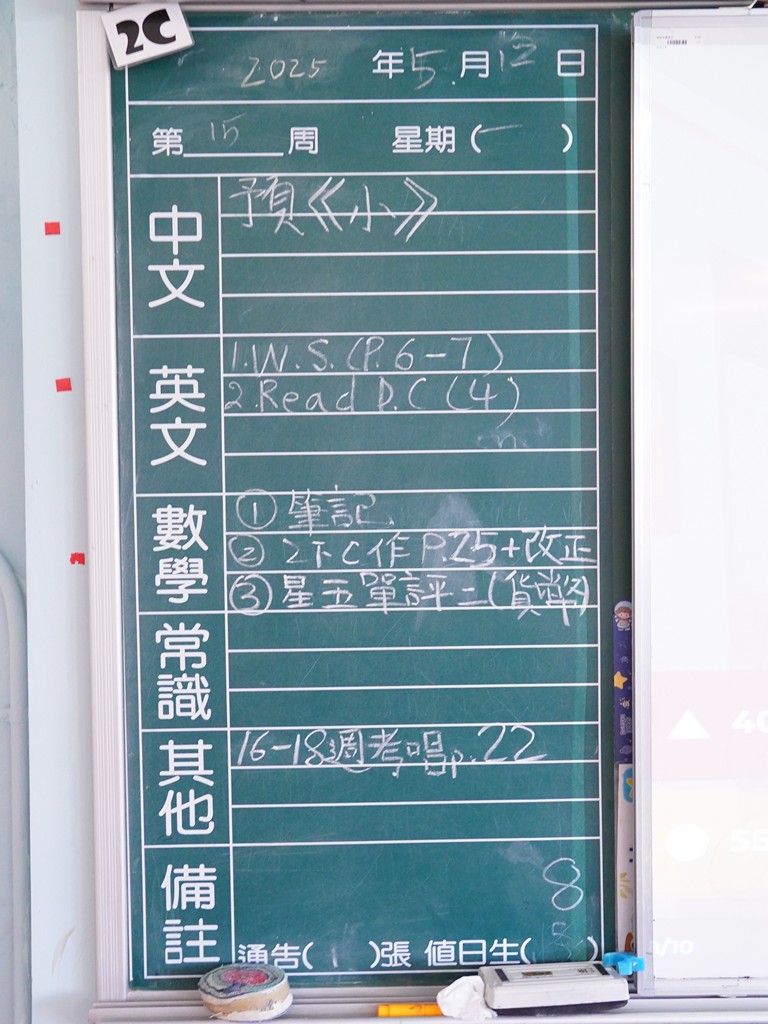 2C
2025 年 5 月 12 日
第 15 周 星期 (一)
中文
預《小》
英文
1. W.S. (P. 6-7)
2. Read D.C (4)
數學
① 筆記
② 2下C作 P.25+改正
③ 星五單評二(貨幣)
常識
其他
16-18週考唱p.22
備註
8
通告( 1 )張 值日生( )
40
55
/10